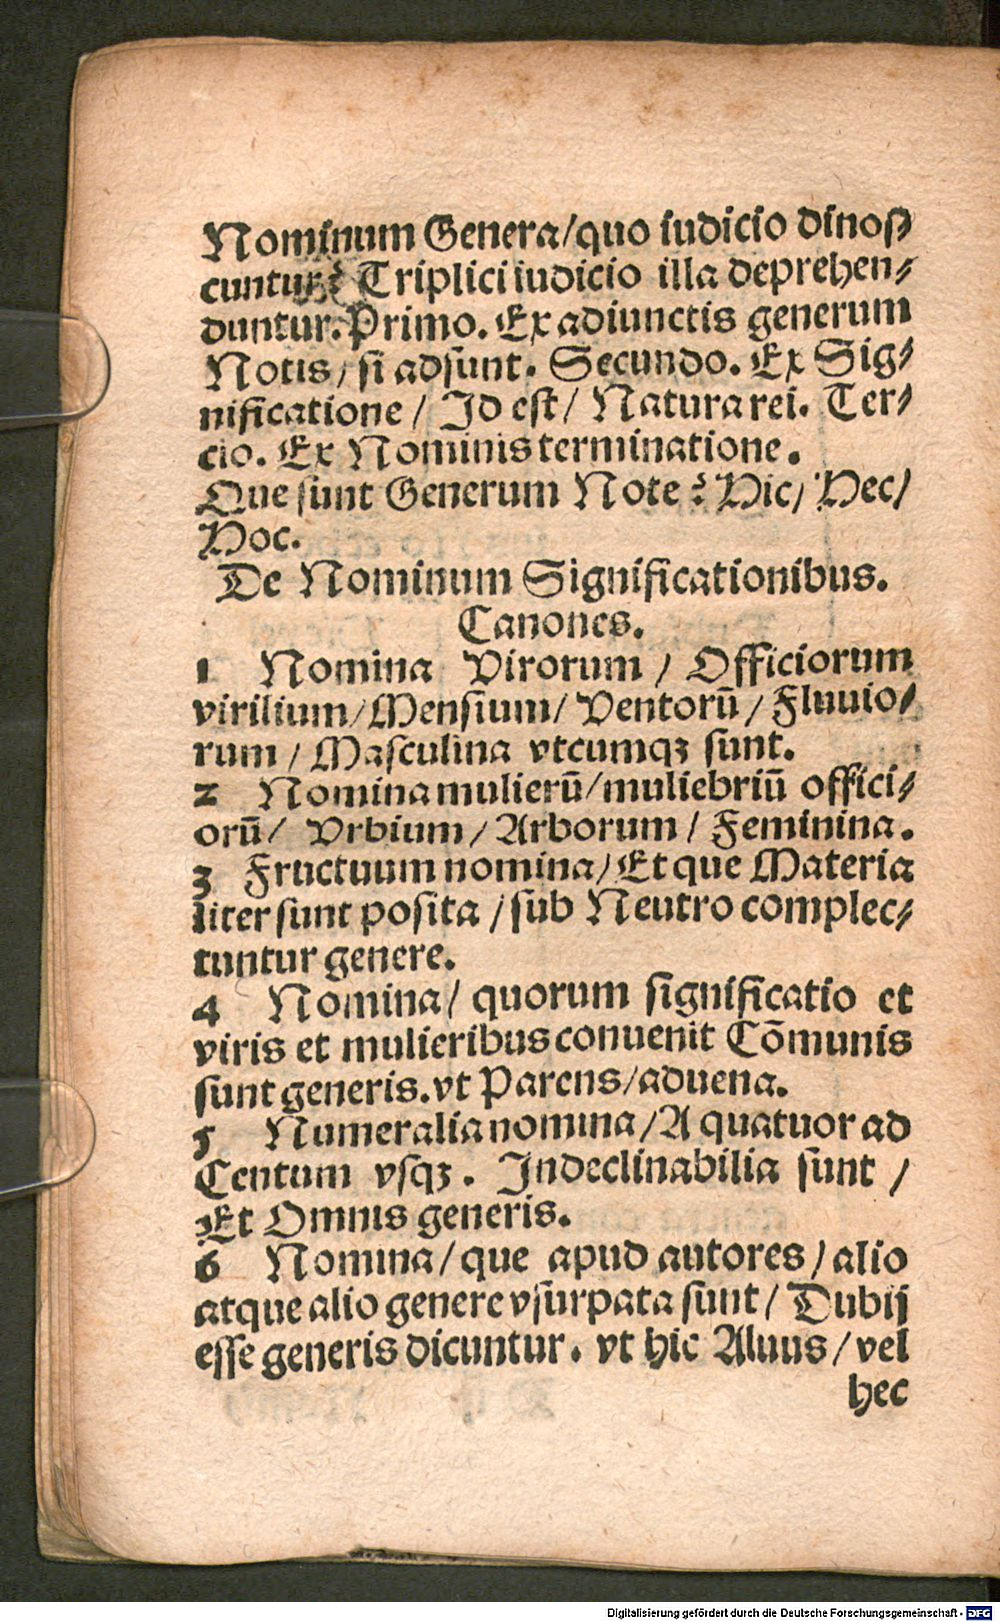 Nominum Genera/quo iudicio dinos⸗
cuntur? Triplici iudicio illa deprehen⸗
duntur. Primo. Ex adiunctis generum
Notis/ si adsunt. Secundo. Ex Sig⸗
nificatione/ Id est/ Natura rei. Ter⸗
cio. Ex Nominis terminatione.
Que sunt Generum Note? Hic/ Hec/
Hoc.
De Nominum Significationibus.
Canones.
1 Nomina Virorum/ Officiorum
virilium/Mensium/ Ventorū/ Fluuio⸗
rum/ Masculina vtcumqꝫ sunt.
2 Nomina mulierū/muliebriū offici⸗
orū/ Vrbium/Arborum/ Feminina.
3 Fructuum nomina/Et que Materia
liter sunt posita/sub Neutro complec⸗
tuntur genere.
4 Nomina/ quorum significatio et
viris et mulieribus conuenit Cōmunis
sunt generis. vt Parens/aduena.
5 Numeralia nomina/A quatuor ad
Centum vsqꝫ. Indeclinabilia sunt/
Et Omnis generis.
6 Nomina/que apud autores/alio
atque alio genere vsurpata sunt/ Dubij
esse generis dicuntur. vt hic Aluus/vel
hec
Digitalisierung gefördert durch die Deutsche Forschungsgemeinschaft - DFG